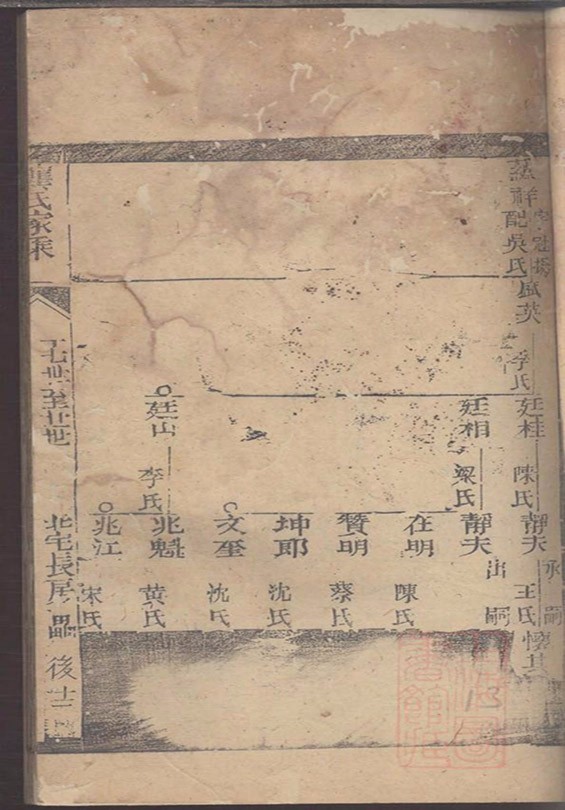 吳氏
配吳氏風英
李氏
廷桂
陳氏
靜夫
承嗣
王氏
廷相
梁氏
靜夫
出嗣
在明
陳氏
贊明
蔡氏
坤郎
沈氏
文奎
沈氏
廷山
李氏
兆魁
黃氏
兆江
宋氏
龔氏家乘
十七世至廿世
北宅長房
後十二
13